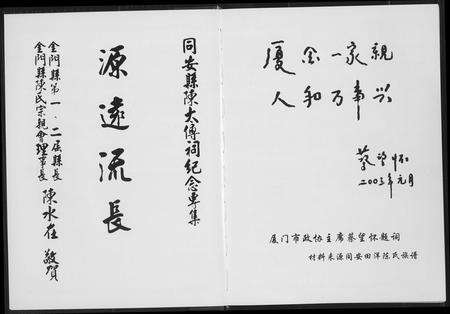 厦金一家親
人和万事兴
蔡望怀
二00三年元月
厦门市政协主席蔡望怀题词
材料来源同安田洋陈氏族谱
同安縣陳太傅祠紀念專集
源遠流長
金門縣第一、二届縣長
金門縣陳氏宗親會理事長
陳水在 敬賀